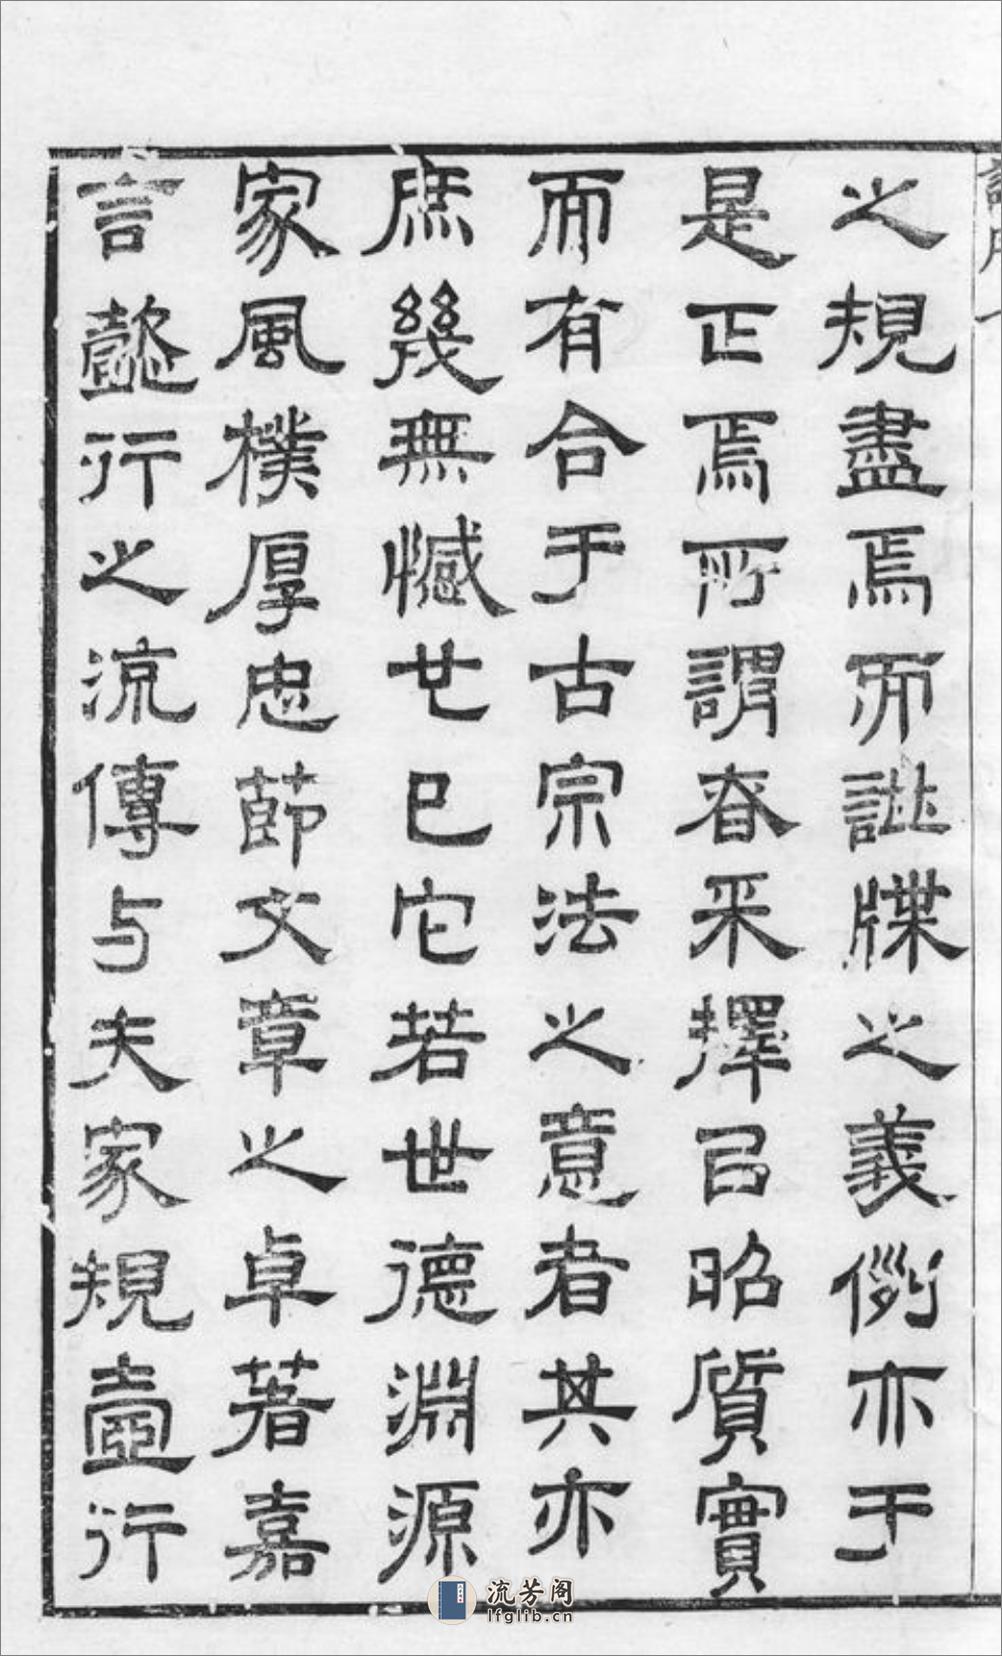 之規盡焉而譜牒之義例亦于
是正焉所謂眘采擇㠯昭質實
而有合于古宗法之意者其亦
庶幾無憾也已它若世德淵源
家風樸厚忠節文章之卓著嘉
言懿行之流傳与夫家規壼行
流芳阁
lfglib.cn